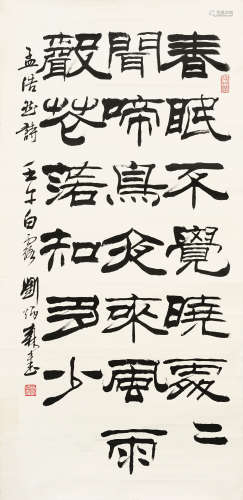 春眠不覺曉處二
聞啼鳥夜來風雨
聲花落知多少
孟浩然詩 壬午白露 劉炳森書